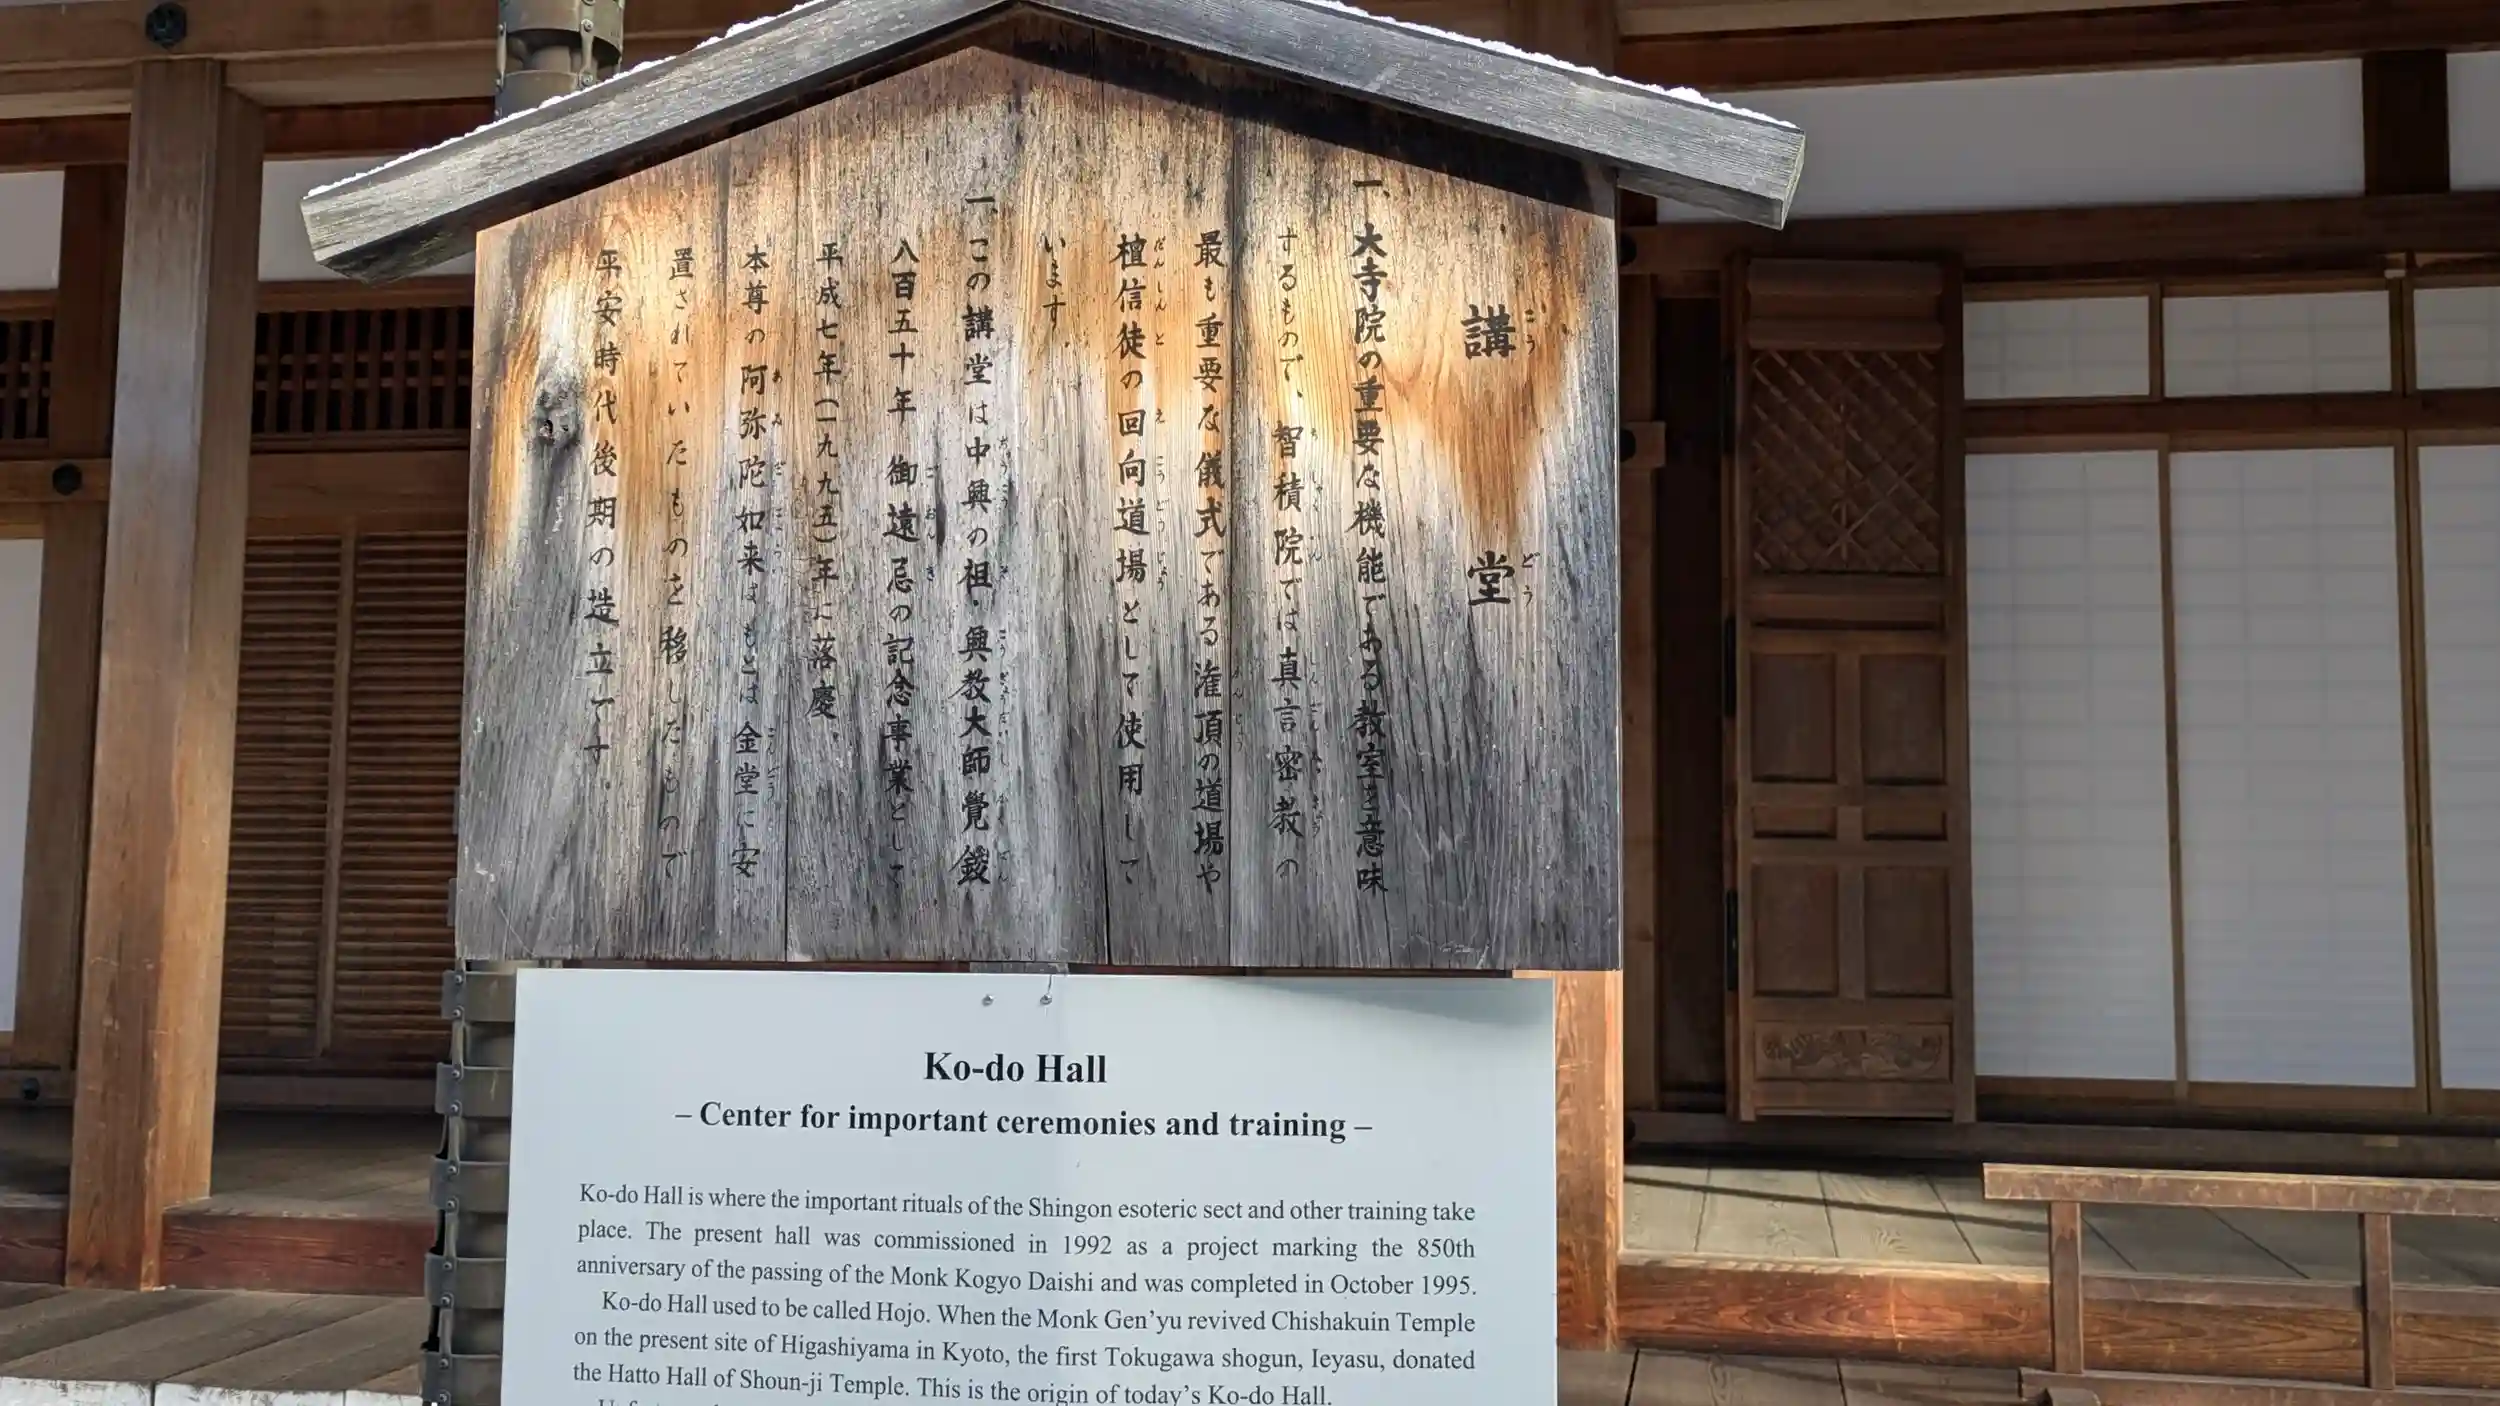 講堂
一、大寺院の重要な機能である教室を意味
するもので、智積院では真言密教の
最も重要な儀式である潅頂の道場や
檀信徒の回向道場として使用して
います。
一、この講堂は中興の祖・興教大師覺鑁
八百五十年 御遠忌の記念事業として
平成七年(一九九五)年に落慶。
本尊の阿弥陀如来はもとは金堂に安
置されていたものを移したもので
平安時代後期の造立です。
Ko-do Hall
– Center for important ceremonies and training –
Ko-do Hall is where the important rituals of the Shingon esoteric sect and other training take
place. The present hall was commissioned in 1992 as a project marking the 850th
anniversary of the passing of the Monk Kogyo Daishi and was completed in October 1995.
Ko-do Hall used to be called Hojo. When the Monk Gen'yu revived Chishakuin Temple
on the present site of Higashiyama in Kyoto, the first Tokugawa shogun, Ieyasu, donated
the Hatto Hall of Shoun-ji Temple. This is the origin of today's Ko-do Hall.